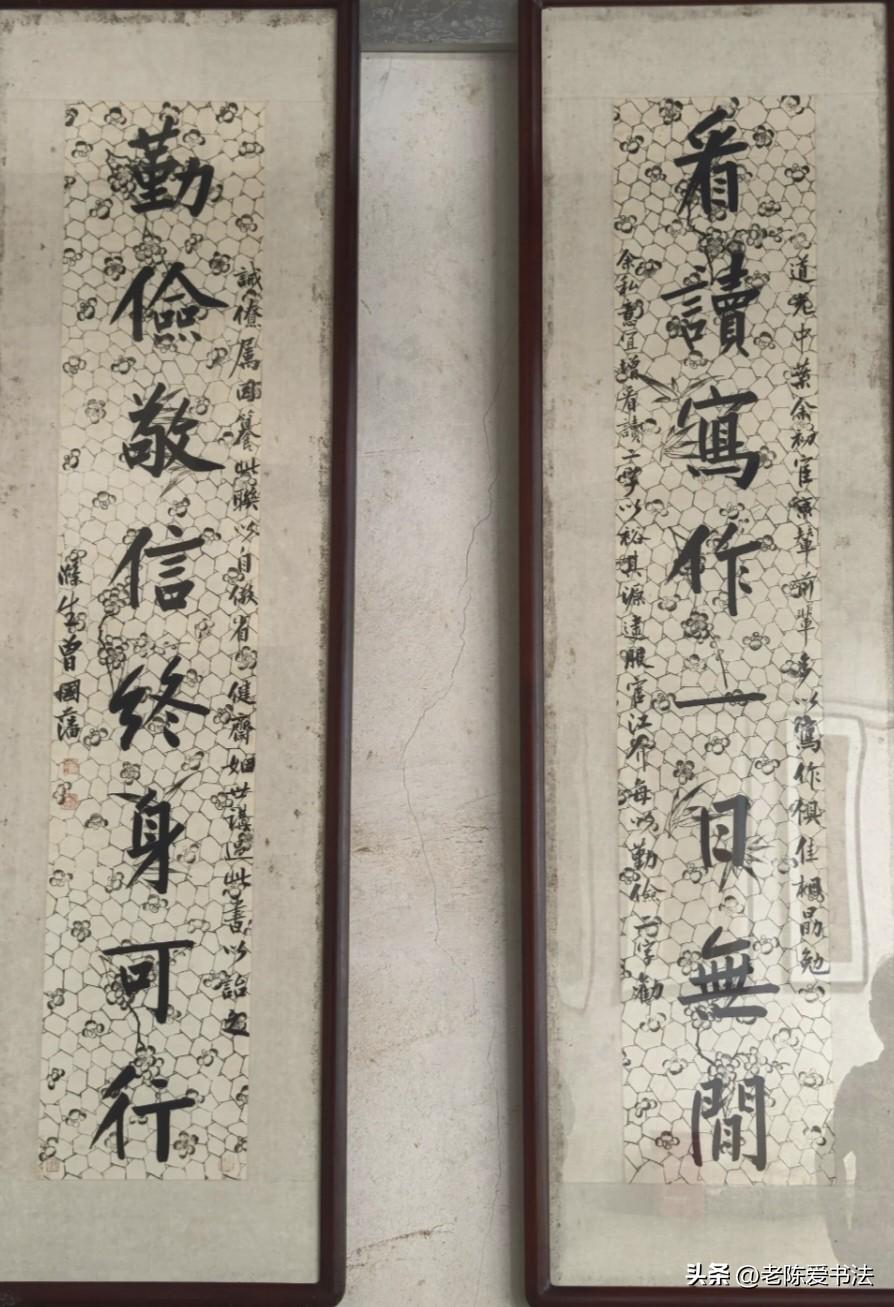 看讀寫作一日無閒
道光中葉余初官京輦前輩多以寫作俱佳相勗勉
余私意宜增看讀二字以裕其源逮服官江介每以勤儉二字勸
勤儉敬信終身可行
誡僚属因篹此聯以自儆省健齋姻世講過此書以詒之
滌生曾國藩
头条 @老陈爱书法